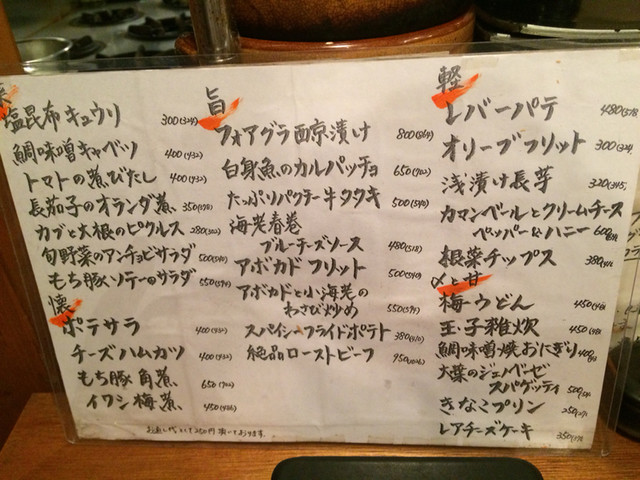 菜
塩昆布キュウリ 300(324)
鯛味噌キャベツ 400(432)
トマトの煮びたし 400(432)
長茄子のオランダ煮 350(378)
カブと大根のピクルス 280(302)
旬野菜のアンチョビサラダ 500(540)
もち豚ソテーのサラダ 550(594)
懐
ポテサラ 400(432)
チーズハムカツ 400(432)
もち豚角煮 650(702)
イワシ梅煮 450(486)
お通し代として250円頂いております。
旨
フォアグラ西京漬け 800(864)
白身魚のカルパッチョ 650(702)
たっぷりパクチー牛タタキ 500(540)
海老春巻
ブルーチーズソース 480(518)
アボカドフリット 500(540)
アボカドと小海老の
わさび炒め 550(594)
スパイシーフライドポテト 380(410)
絶品ローストビーフ 950(1026)
軽
レバーパテ 480(518)
オリーブフリット 300(324)
浅漬け長芋 320(345)
カマンベールとクリームチーズ
ペッパーなハニー 600(648)
根菜チップス 380(410)
〆と甘
梅うどん 450(486)
玉子雑炊 450(486)
鯛味噌焼おにぎり 400(432)
大葉のジェノベーゼ
スパゲッティ 500(540)
きなこプリン 250(270)
レアチーズケーキ 350(378)